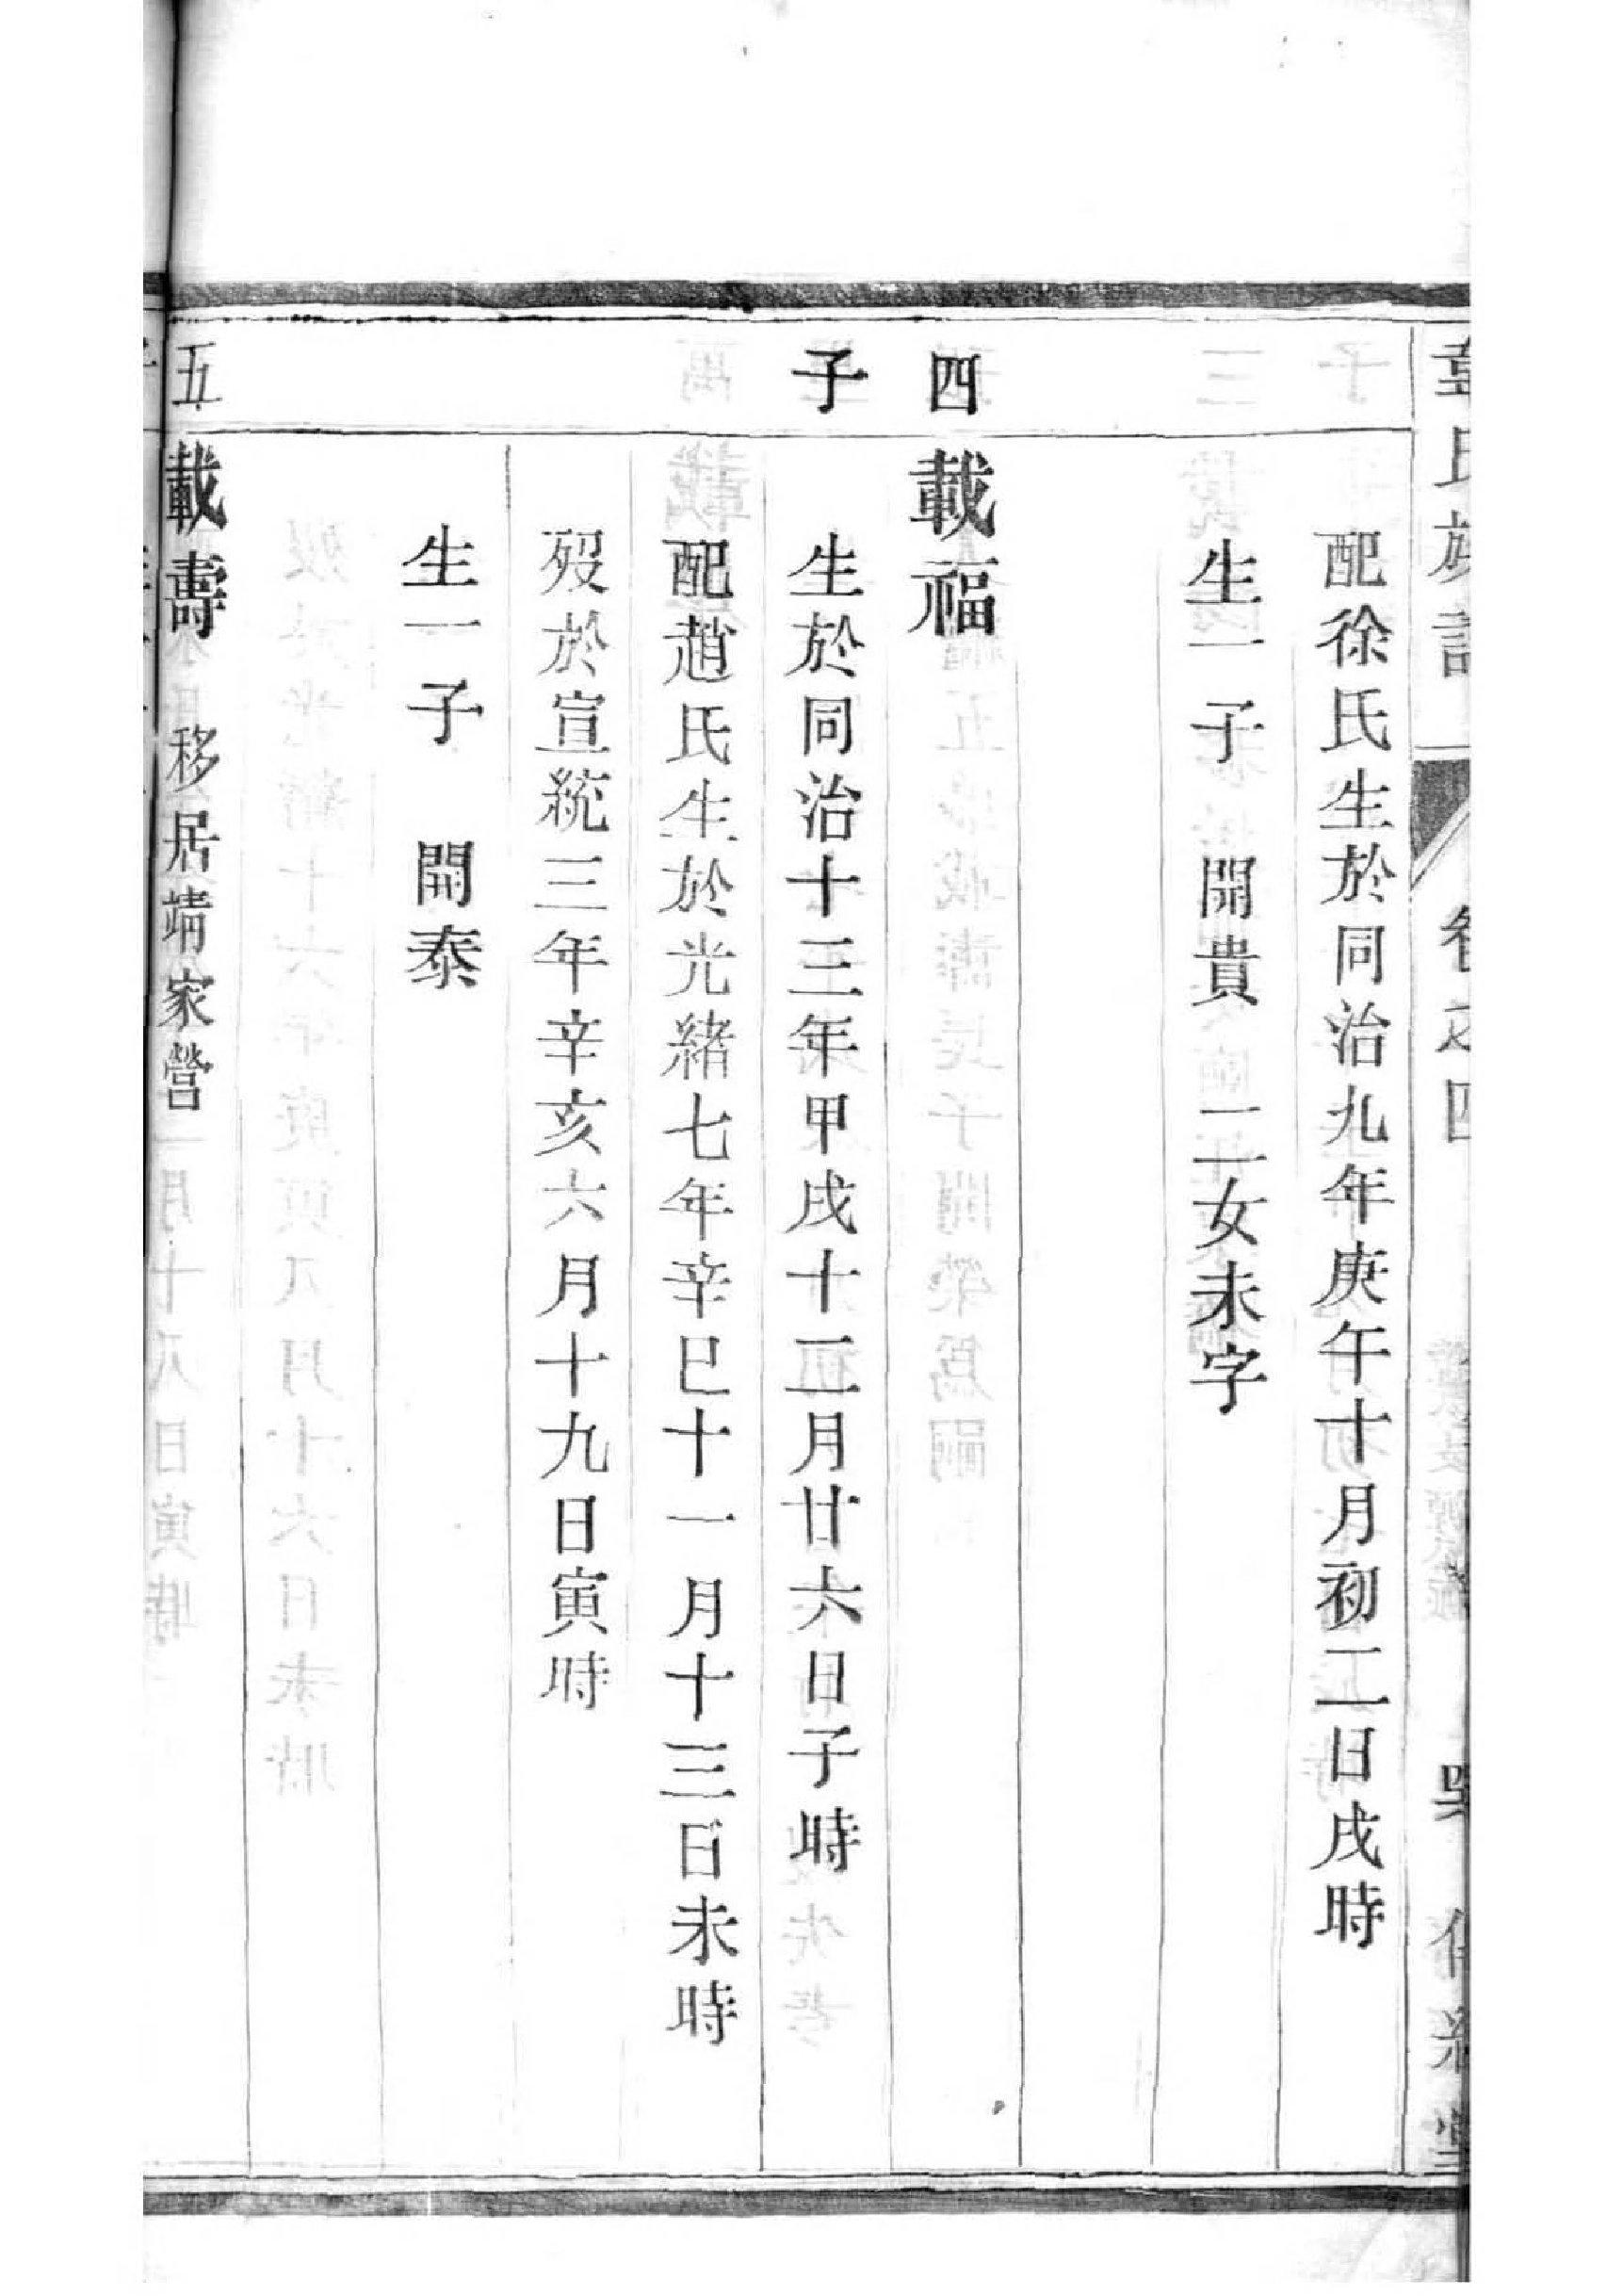 氏族譜
卷之四
配徐氏生於同治九年庚午十月初二日戌時
生一子 開貴 二女未字
四 載福
子 生於同治十三年甲戌十二月廿六日子時
配趙氏生於光緒七年辛巳十一月十三日未時
歿於宣統三年辛亥六月十九日寅時
生一子 開泰
五 載壽 移居靖家營